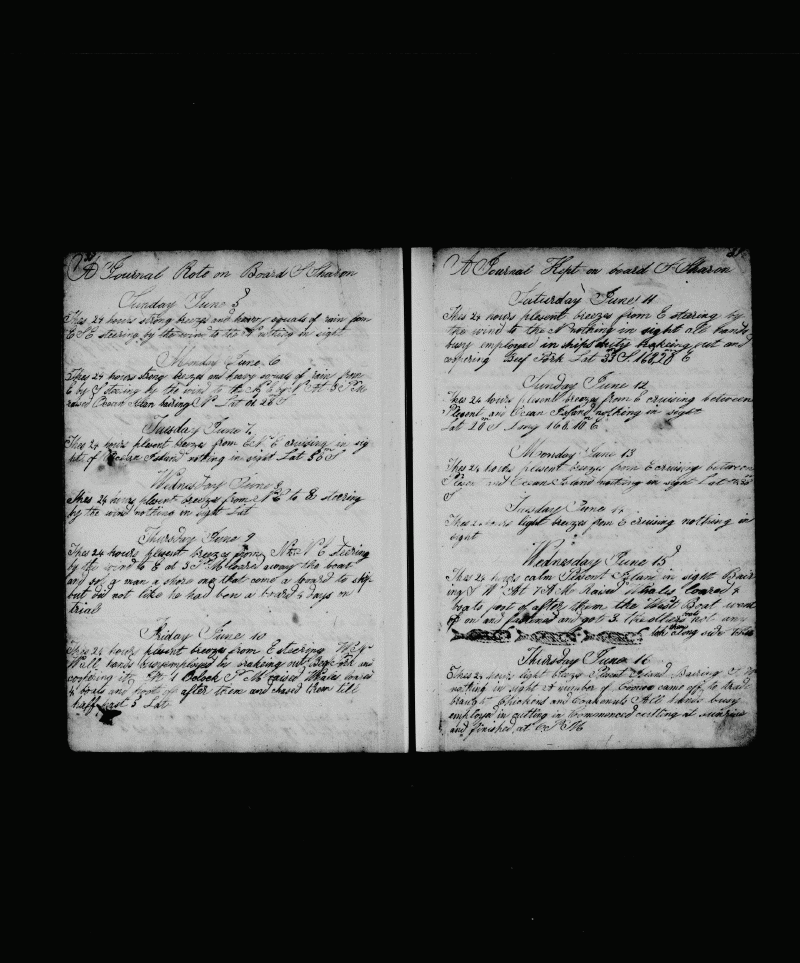 A Journal Rote on Board S Sharon
Sunday June 5
Thes 24 hours strong breezes and heavy squals of rain from
E S E stering by the wind to the N nothing in sight
Monday June 6
Thes 24 hours strong breezes and heavy squals of rain from
E by S stering by the wind to the N E by N At 3 P M
raised Ocean Islan baring N Lat
Tuesday June 7
Thes 24 hours plesent breezes from E N E cruising in sig
of Ocean Island nothing in sight Lat
Wednesday June 8
Thes 24 hours plesent breezes from N E to E stering
by the wind nothing in sight Lat
Thursday June 9
Thes 24 hours plesent breezes from N E stering
by the wind to at 3 P M loared away the boat
and set a man a shore one that come a board to ship
but did not like he had ben a board 4 days on
trial
Friday June 10
Thes 24 hours plesent breezes from E steering
all hands employed by braking out Beef and
coopering it At 1 Oclock P M raised Whales loared
4 boats and put of after them and chased them till
half past 5 Lat
31
A Journal Kept on board S Sharon
Saturday June 11
Thes 24 hours plesent breezes from E stering by
the wind to the S nothing in sight all hands
busy employed in ships duty brakeing out and
coopering Beef Pork Lat
Sunday June 12
Thes 24 hours plesent breezes from E cruising between
Plesent and Ocean Island nothing in sight
Lat Long
Monday June 13
Thes 24 hours plesent breezes from E cruising between
Plesent and Ocean Island nothing in sight Lat
S
Tuesday June
Thes 24 hours light breezes from E cruising nothing in
sight
Wednesday June 15
Thes 24 hours calm Plesent Island in sight Bair
ing S W At 7 A M Raised whales loared 4
boats put of after them the Wast Boat went
on and fastened and got 3 the others not any
took them along side
Thursday June 16
Thes 24 hours light Plesent Island Bairing
nothing in sight A number of canoes came off to trad
brought Chickens and Cophenuts All hands busy
employed in cutting in commenced cutting at sunrise
and finished at 6 P M